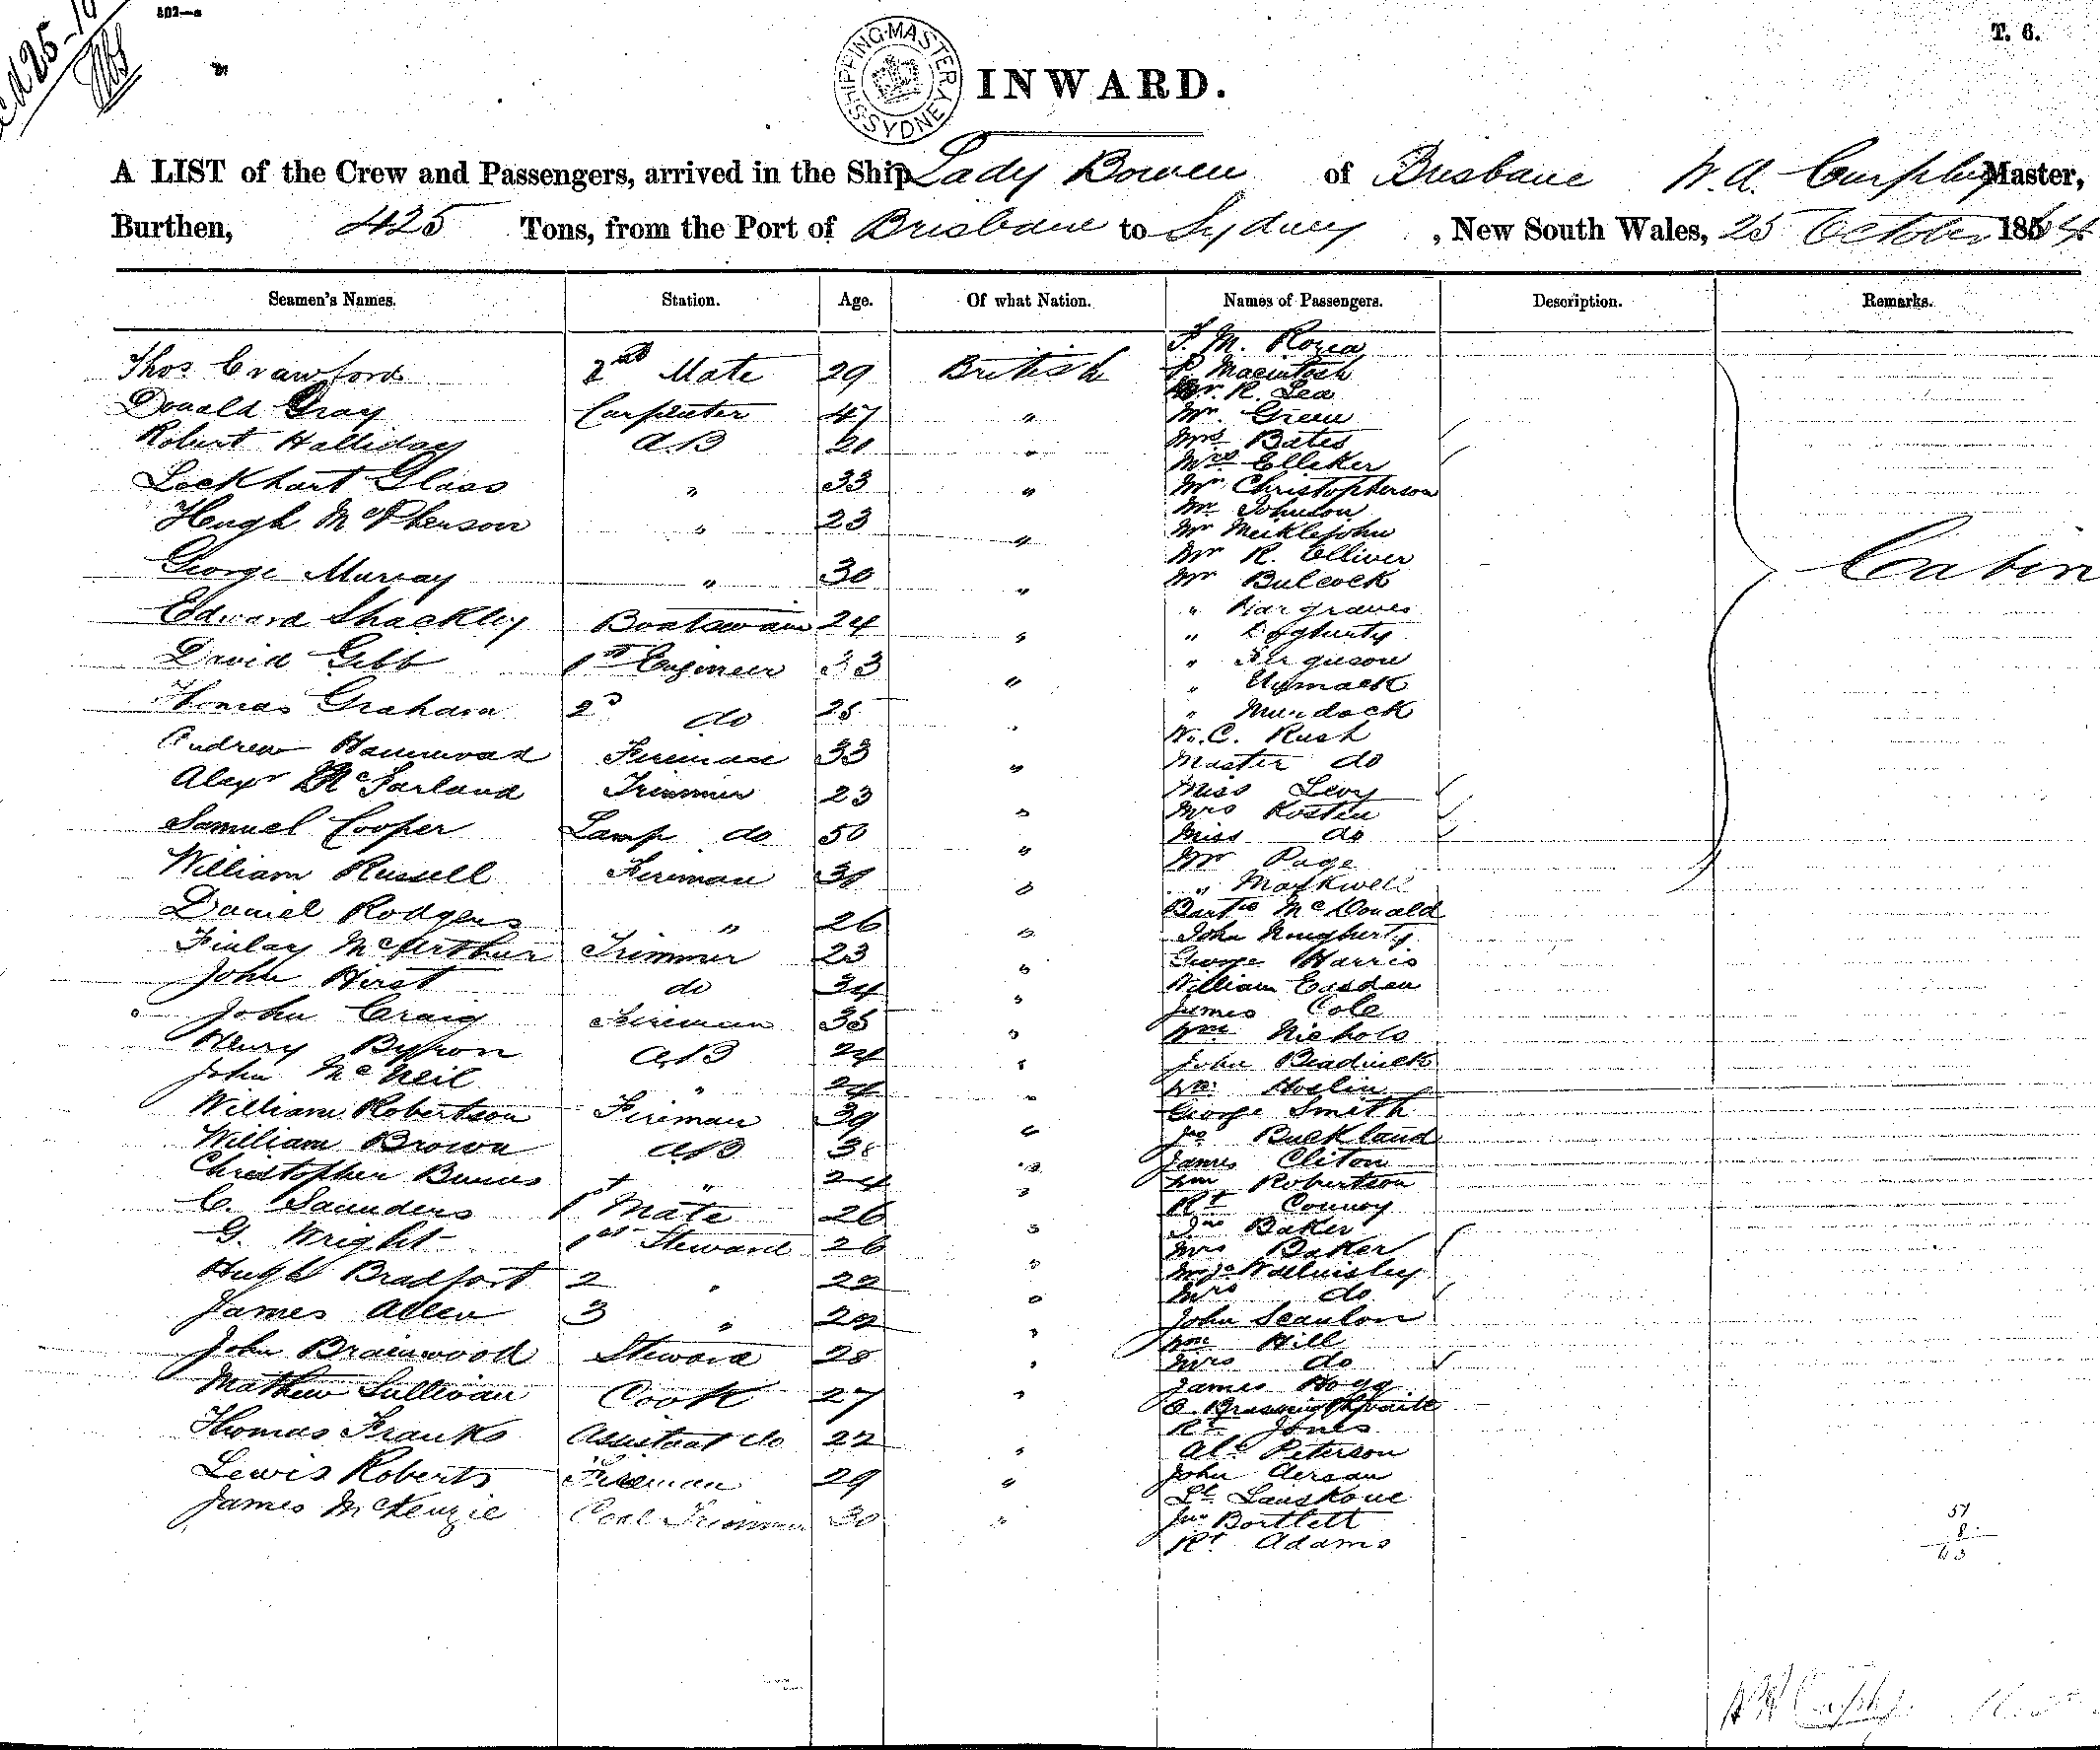 802—a
T. 6.
SHIPPING MASTER SYDNEY
INWARD.
A LIST of the Crew and Passengers, arrived in the Ship Lady Bowen of Brisbane W. A. Curphey Master,
Burthen, 425 Tons, from the Port of Brisbane to Sydney, New South Wales, 25 October 1864
Seamen's Names. Station. Age. Of what Nation. Names of Passengers. Description. Remarks.
Thos Crawford 2nd Mate 29 British
Donald Gray Carpenter 47 "
Robert Halliday A.B 21 "
Lockhart Glass " 33 "
Hugh McPherson " 23 "
George Murray " 30 "
Edward Shackley Boatswain 24 "
David Gibb 1st Engineer 33 "
Thomas Graham 2d do 25 "
Andrew Fireman 33 "
Alexr McFarland Trimmer 23 "
Samuel Cooper Lamp do 50 "
William Russell Fireman 30 "
Daniel Rodgers " 26 "
Finlay McArthur Trimmer 23 "
John Hirst do 34 "
John Craig Fireman 35 "
Henry Byron AB 24 "
John McNeil " 24 "
William Robertson Fireman 39 "
William Brown AB "
Christopher Burns " 24 "
C. Saunders 1st Mate 26 "
G. Wright 1st Steward 26 "
Hugh Bradfort 2 " 22 "
James Allen 3 " 22 "
John Brainwood Steward 28 "
Mathew Sullivan Cook 27 "
Thomas Franks Assistant do 22 "
Lewis Roberts Fireman 29 "
James McKenzie Coal Trimmer 30 "
F. M.
P. Macintosh
Mr. R. Lea
Mr. Green
Mrs Bates
Mrs Elleker
Mr Christopherson
Mr Johnson
Mr Meiklejohn
Mr R. Elliver
Mr Bulcock
" Hargraves
"
" Ferguson
"
" Murdock
W. C. Rush
Master do
Miss Levy
Mrs Kosten
Miss do
Mr Page
" Markwell
Cabin
McDonald
John
George Harris
William Easden
James Cole
Wm Nichols
John
Wm Hoslin
George Smith
Jno Buckland
James Cliton
Wm Robertson
Rt Conroy
Jno Baker
Mrs Baker
Walmisley
Mrs do
John Scanlon
Wm Hill
Mrs do
James Hogg
Rt Jones
Alc Peterson
John
Jno Bartlett
Rt Adams
51
8
43